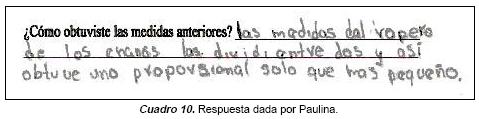 ¿Cómo obtuviste las medidas anteriores? las medidas del ropero
de los enanos las dividi entre dos y así
obtuve uno proporsional solo que mas pequeño.
Cuadro 10. Respuesta dada por Paulina.